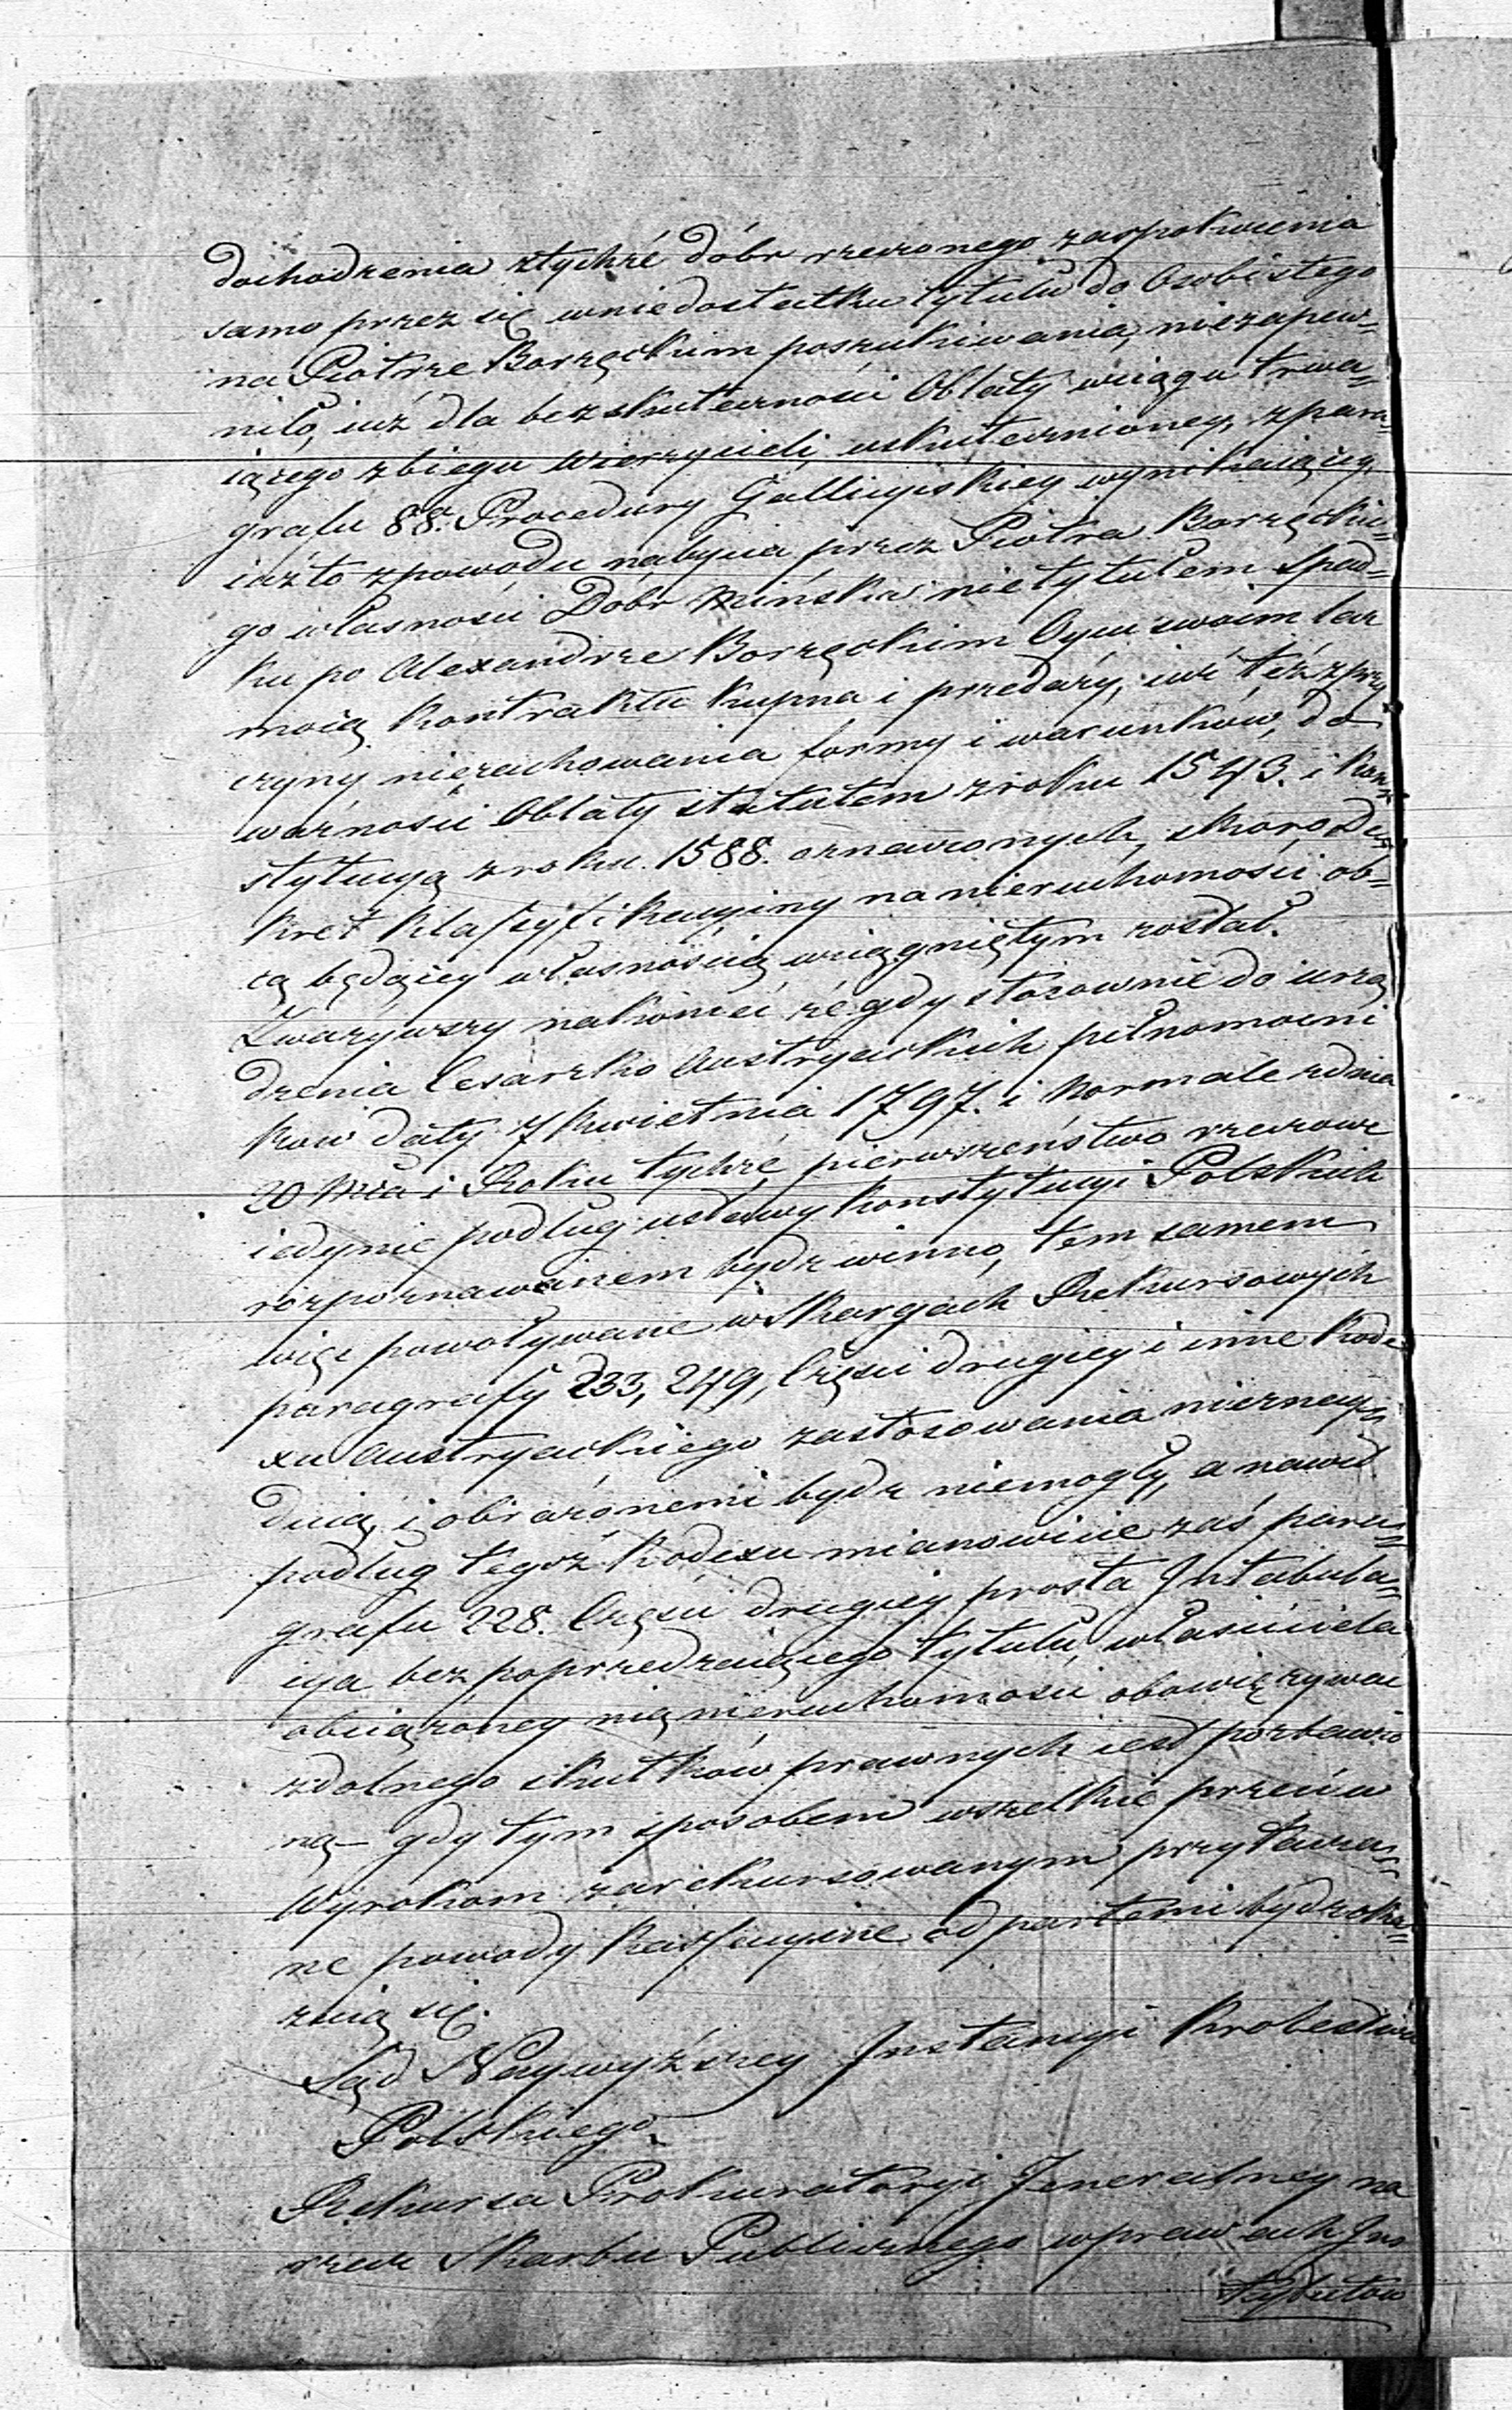 dochodzenia ztychże dóbr rzeczonego zaspokoienia
samo przez się wniedostatku tytułu do Osobistego
na Piotrze Borzęckim poszukiwania, niezapew=
niło, iuż dla bezskuteczności Oblaty wciągu trwa=
iącego zbiegu Wierzycieli, uskutecznioney, z para=
grafu 88. Procedury Gallicyiskiey wynikaiącey,
iużto z powodu nabycia przez Piotra Borzęckie=
go własności Dóbr Mińska nie tytułem Spad=
ku po Alexandrze Borzęckim Oycu swoim lecz
mocą Kontraktu Kupna i przedaży, iuż też z przy
czyny niezachowania formy i warunków, do
ważności Oblaty statutem z roku 1543. i Kon=
stytucyą z roku. 1588. oznaczonych, skoro De=
kret Klassyfikacyiny na nieruchomości ob=
cą będącey własnością wciągniętym został.
Zważywszy nakoniec że gdy stosownie do urzą
dzenia Cesarsko Austryackich pełnomocni
ków daty 7 Kwietnia 1797. i Normale zdnia
20 Mca i Roku tychże, pierwszeństwo rzeczowe
iedynie podług ustawy Konstytucyi Polskich
rozpoznawanem bydz winno, tem samem
więc powoływane w Skargach Rekursowych
paragrafy 233, 249, Części drugiey i inne Kode
xu Austryackiego zastosowania nieznay=
duią, i obrażonemi bydz niemogły, a nawet
podług tegoż Kodexu mianowicie zaś para=
grafu 228. Części drugiey prosta Intabula=
cya bez poprzedzaiącego tytułu, właściciela
obciążoney nią nieruchomości obowięzywać
zdolnego skutków prawnych iest pozbawio
ną — gdy tym sposobem wszelkie przeciw
Wyrokom zarekursowanym przytacza=
ne powody Kassacyine odpartemi bydz oka=
zuią się.
Sąd Naywyższey Instancyi Królestwa
Polskiego
Rekursa Prokuratoryi Jeneralney na
rzecz Skarbu Publicznego wprawach Ins
tytutów